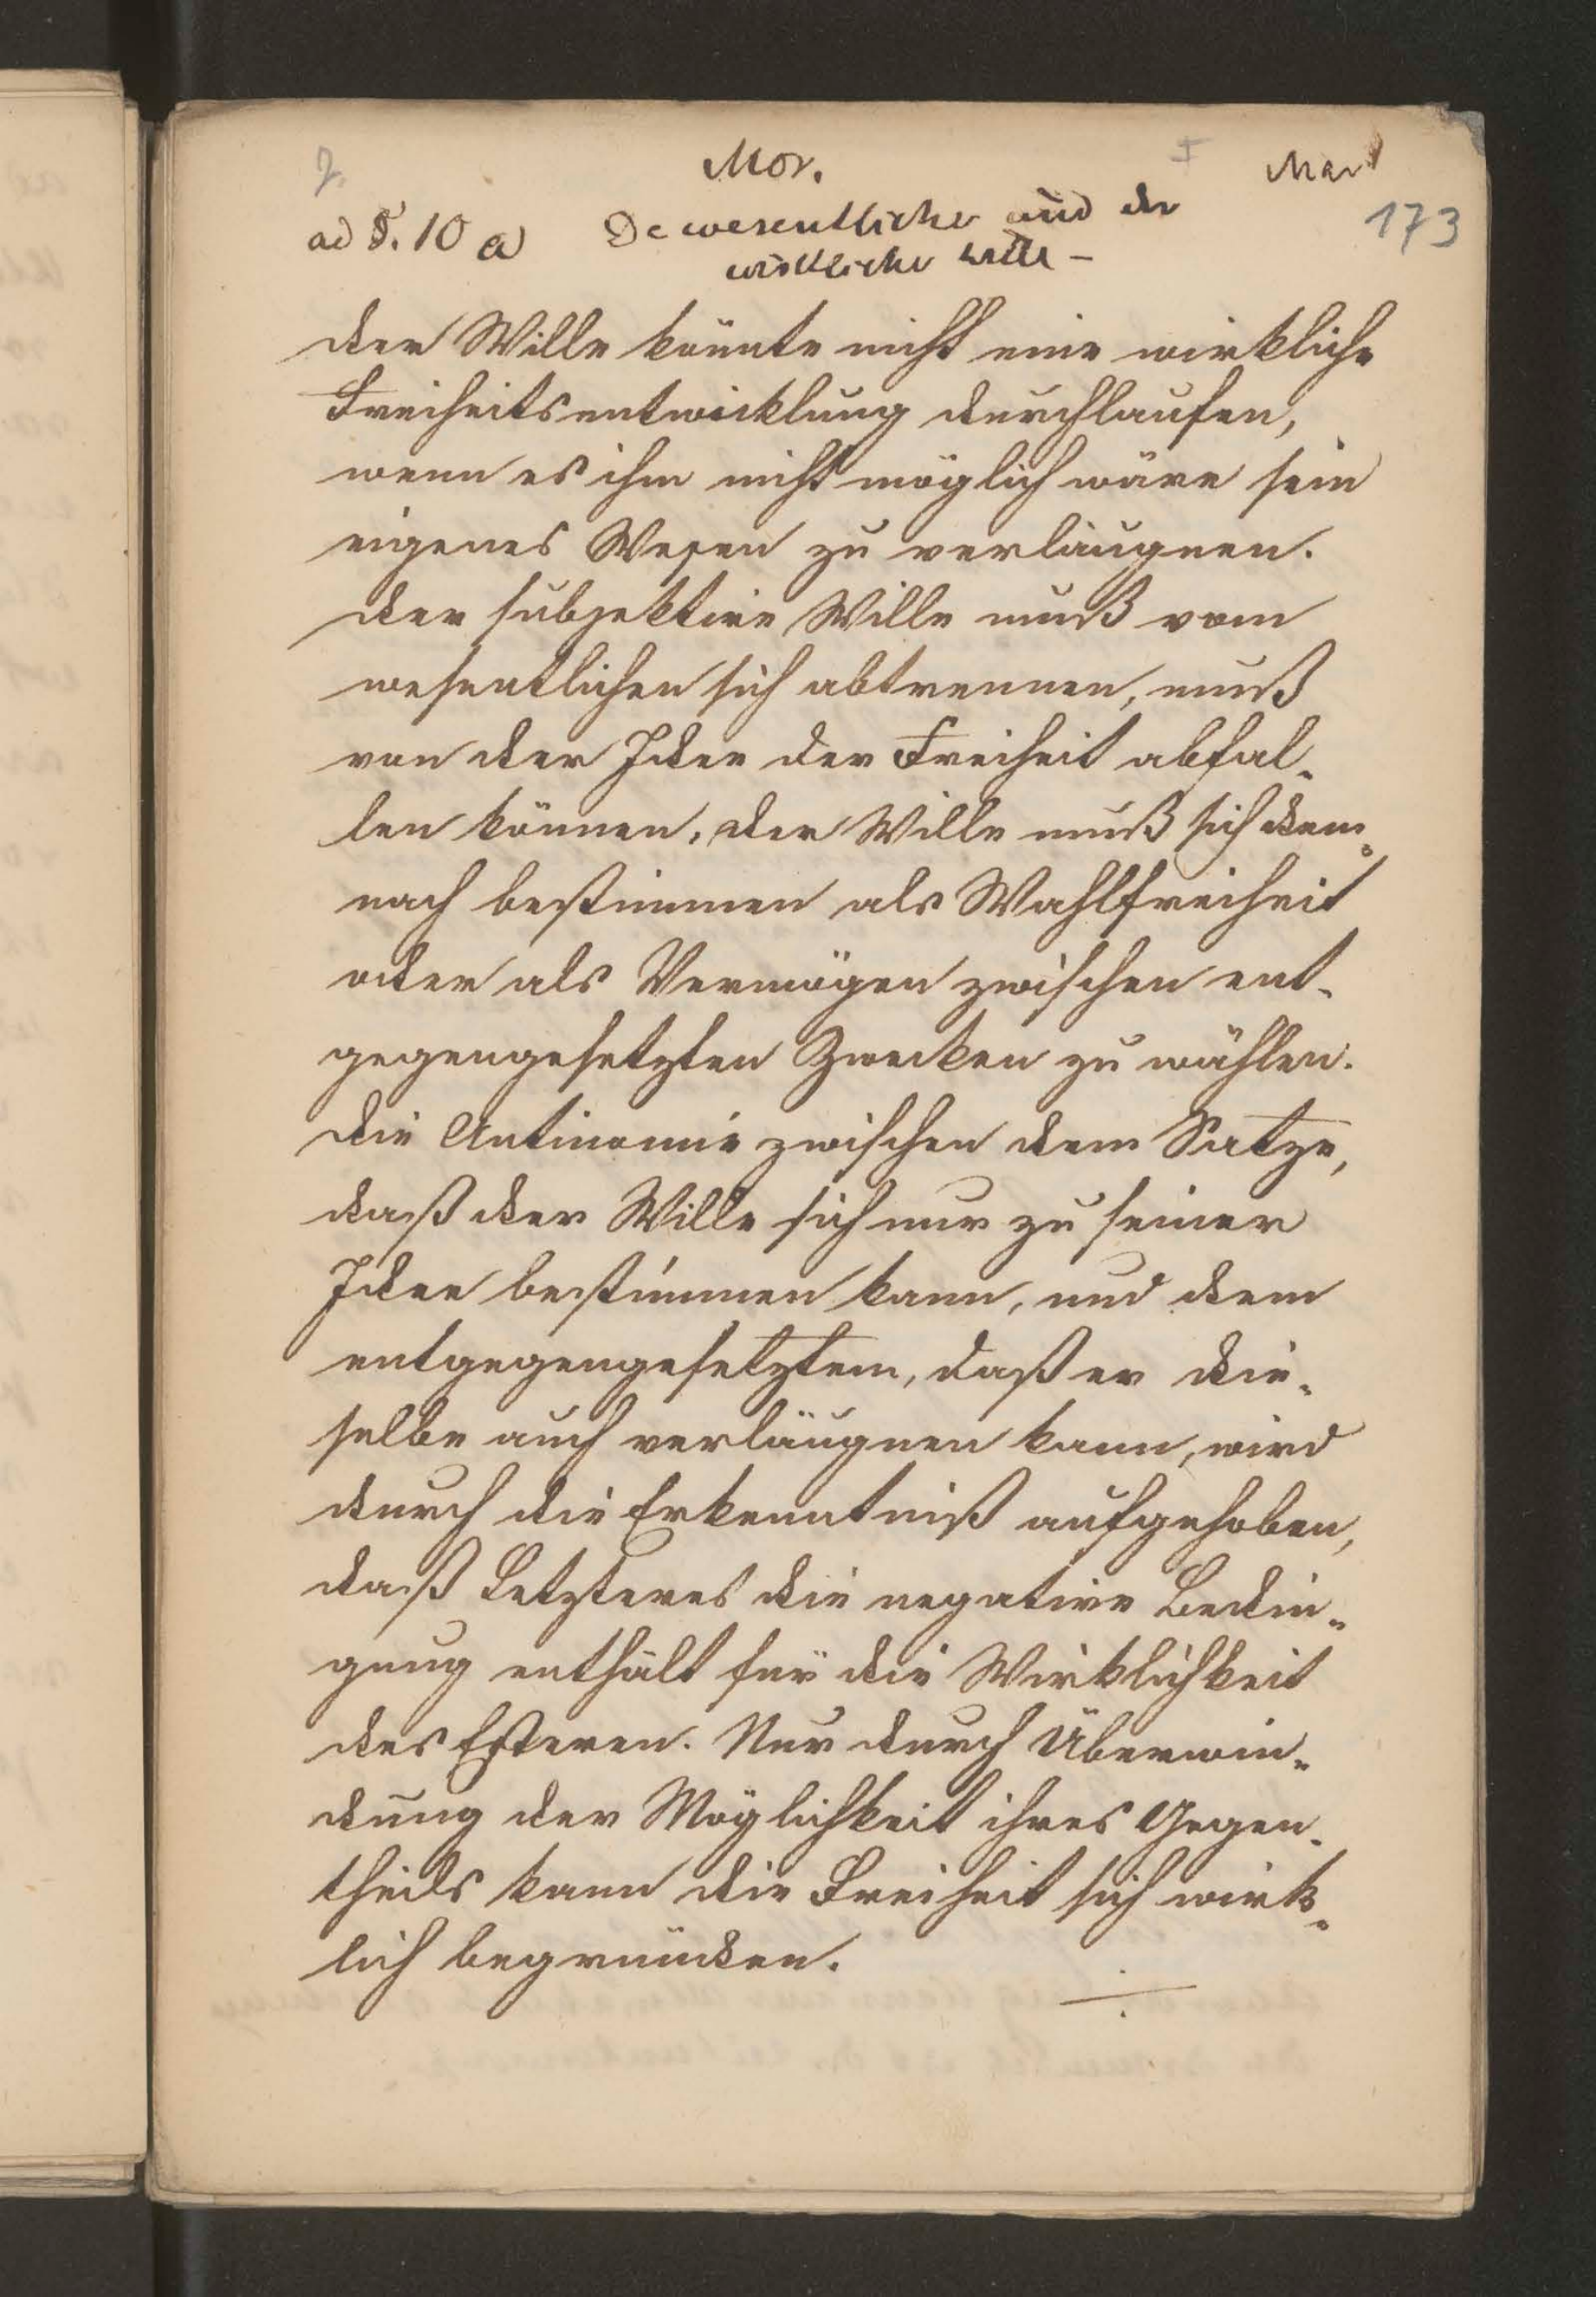 Mor.
I
Mar
ad §. 10 a
De wesentliche und der
173
wirkliche Wille –
Der Wille könnte nicht eine wirkliche
Freiheitsentwicklung durchlaufen,
wenn es ihm nicht möglich wäre sein
eigenes Wesen zu verläugnen.
Der subjektive Wille muß vom
wesentlichen sich abtrennen, muß
von der Idee der Freiheit abfal-
len können, der Wille muß sich dem-
nach bestimmen als Wahlfreiheit
oder als Vermögen zwischen ent-
gegengesetzten Zwecken zu wählen.
Die Antinomie zwischen dem Satze,
daß der Wille sich nur zu seiner
Idee bestimmen kann, und dem
entgegengesetztem, daß er die-
selbe auch verläugnen kann, wird
durch die Erkenntniß aufgehoben,
daß Letzteres die negative Bedin-
gung enthält für die Wirklichkeit
des Ersteren. Nur durch Überwin-
dung der Möglichkeit ihres Gegen-
theils kann die Freiheit sich wirk-
lich begründen.